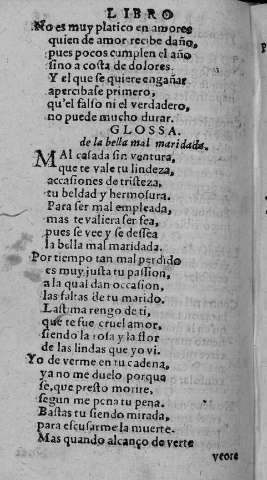 LIBRO
No es muy platico en amores
quien de amor recibe daño,
pues pocos cumplen el año
sino a costa de dolores.
Y el que se quiere engañar
apercibase primero,
qu'el falso ni el verdadero,
no puede mucho durar.
GLOSSA.
de la bella mal maridada.
MAl casada sin ventura,
que te vale tu lindeza,
accasiones de tristeza,
tu beldad y hermosura.
Para ser mal empleada,
mas te valiera ser fea,
pues se vee y se dessea
la bella mal maridada.
Por tiempo tan mal perdido
es muy justa tu passion,
a la qual dan occasion,
las faltas de tu marido.
Lastima tengo de ti,
que te fue cruel amor,
siendo la rosa y la flor
de las lindas que yo vi.
Yo de verme en tu cadena,
ya no me duelo porque
se, que presto morire,
segun me pena tu pena.
Bastas tu siendo mirada,
para escusarme la muerte.
Mas quando alcanço de verte
veote